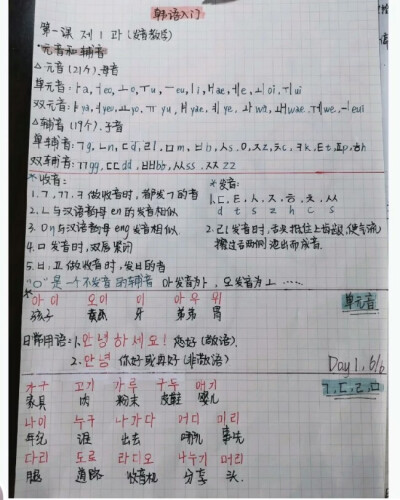 韩语入门
第一课 제 1 과 (发音教学)
*元音和辅音
△元音(21个).母音
单元音:ㅏa,ㅓeo,ㅗo,ㅜu,ㅡeu,ㅣi,ㅐae,ㅔe,ㅚoi,ㅟui
双元音:ㅑya,ㅕyeo,ㅛyo,ㅠyu,ㅒyae,ㅖye,ㅘwa,ㅙwae,ㅞwe,ㅢeui
△辅音(19个).子音
单辅音:ㄱg,ㄴn,ㄷd,ㄹl,ㅁm,ㅂb,ㅅs,ㅇ,ㅈz,ㅊc,ㅋk,ㅌt,ㅍp,ㅎh
双辅音:ㄲgg,ㄸdd,ㅃbb,ㅆss,ㅉzz
*收音:
1.ㄱ,ㄲ,ㅋ做收音时,都发ㄱ的音
2.ㄴ与汉语韵母en的发音相似
3.ㅇ与汉语韵母eng发音相似
4.ㅁ发音时,双唇紧闭
5.ㅂ,ㅍ做收音时,发ㅂ的音
*发音:
1.ㄷ,ㅌ,ㅅ,ㅈ,ㅎ,ㅊ,ㅆ
d t s z h c s
2.ㄹ发音时,舌尖抵住上齿龈,使气流
擦过舌两侧
"ㅇ"是一个不发音的辅音 아发音为ㅏ,오发音为ㅗ……
*아이 오이 이 아우 위
孩子 黄瓜 牙 弟弟 胃
单元音
日常用语:1.안녕하세요! 您好(敬语)
2.안녕 你好或再好(非敬语)
Day 1, 6/6
가구 고기 가루 구두 애기
家具 肉 粉末 皮鞋 婴儿
ㄱ,ㄷ,ㄹ,ㅁ
나이 누구 나가다 어디 미리
年纪 谁 出去 哪儿 事先
다리 도로 라디오 나누기 머리
腿 道路 收音机 分享 头.